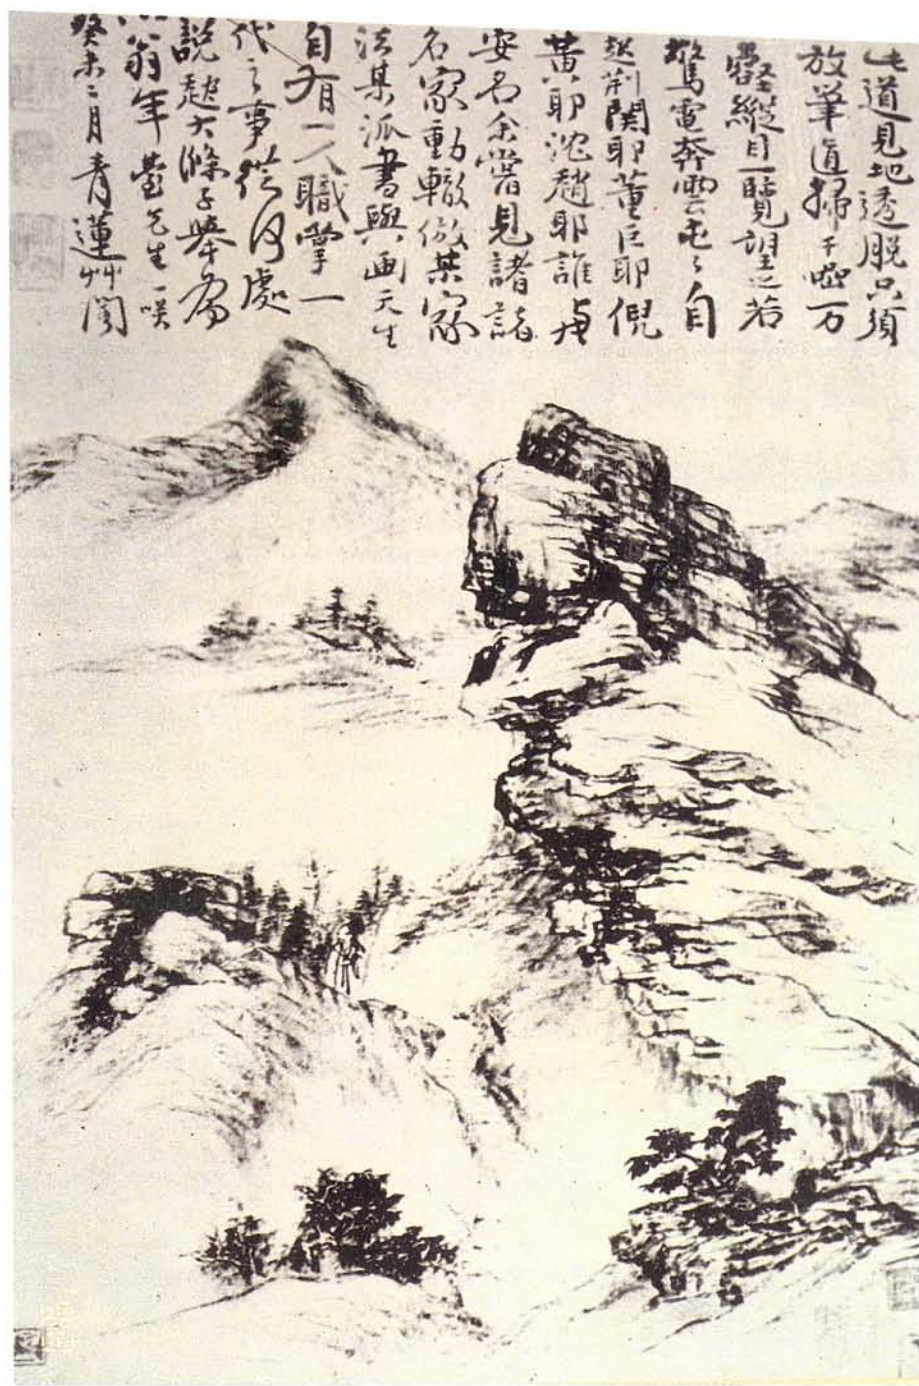 此道見地透脫只須
放筆直掃千巖万
壑縱目一覽望之若
驚電奔雲屯屯自
起荊關耶董巨耶倪
黃耶沈趙耶誰与
安名余嘗見諸諸
名家動轍倣某家
法某派書與画天生
自有一人職掌一
代之事從何處
說起大滌子舉為
翁年臺先生一咲
癸未二月青蓮艸閣